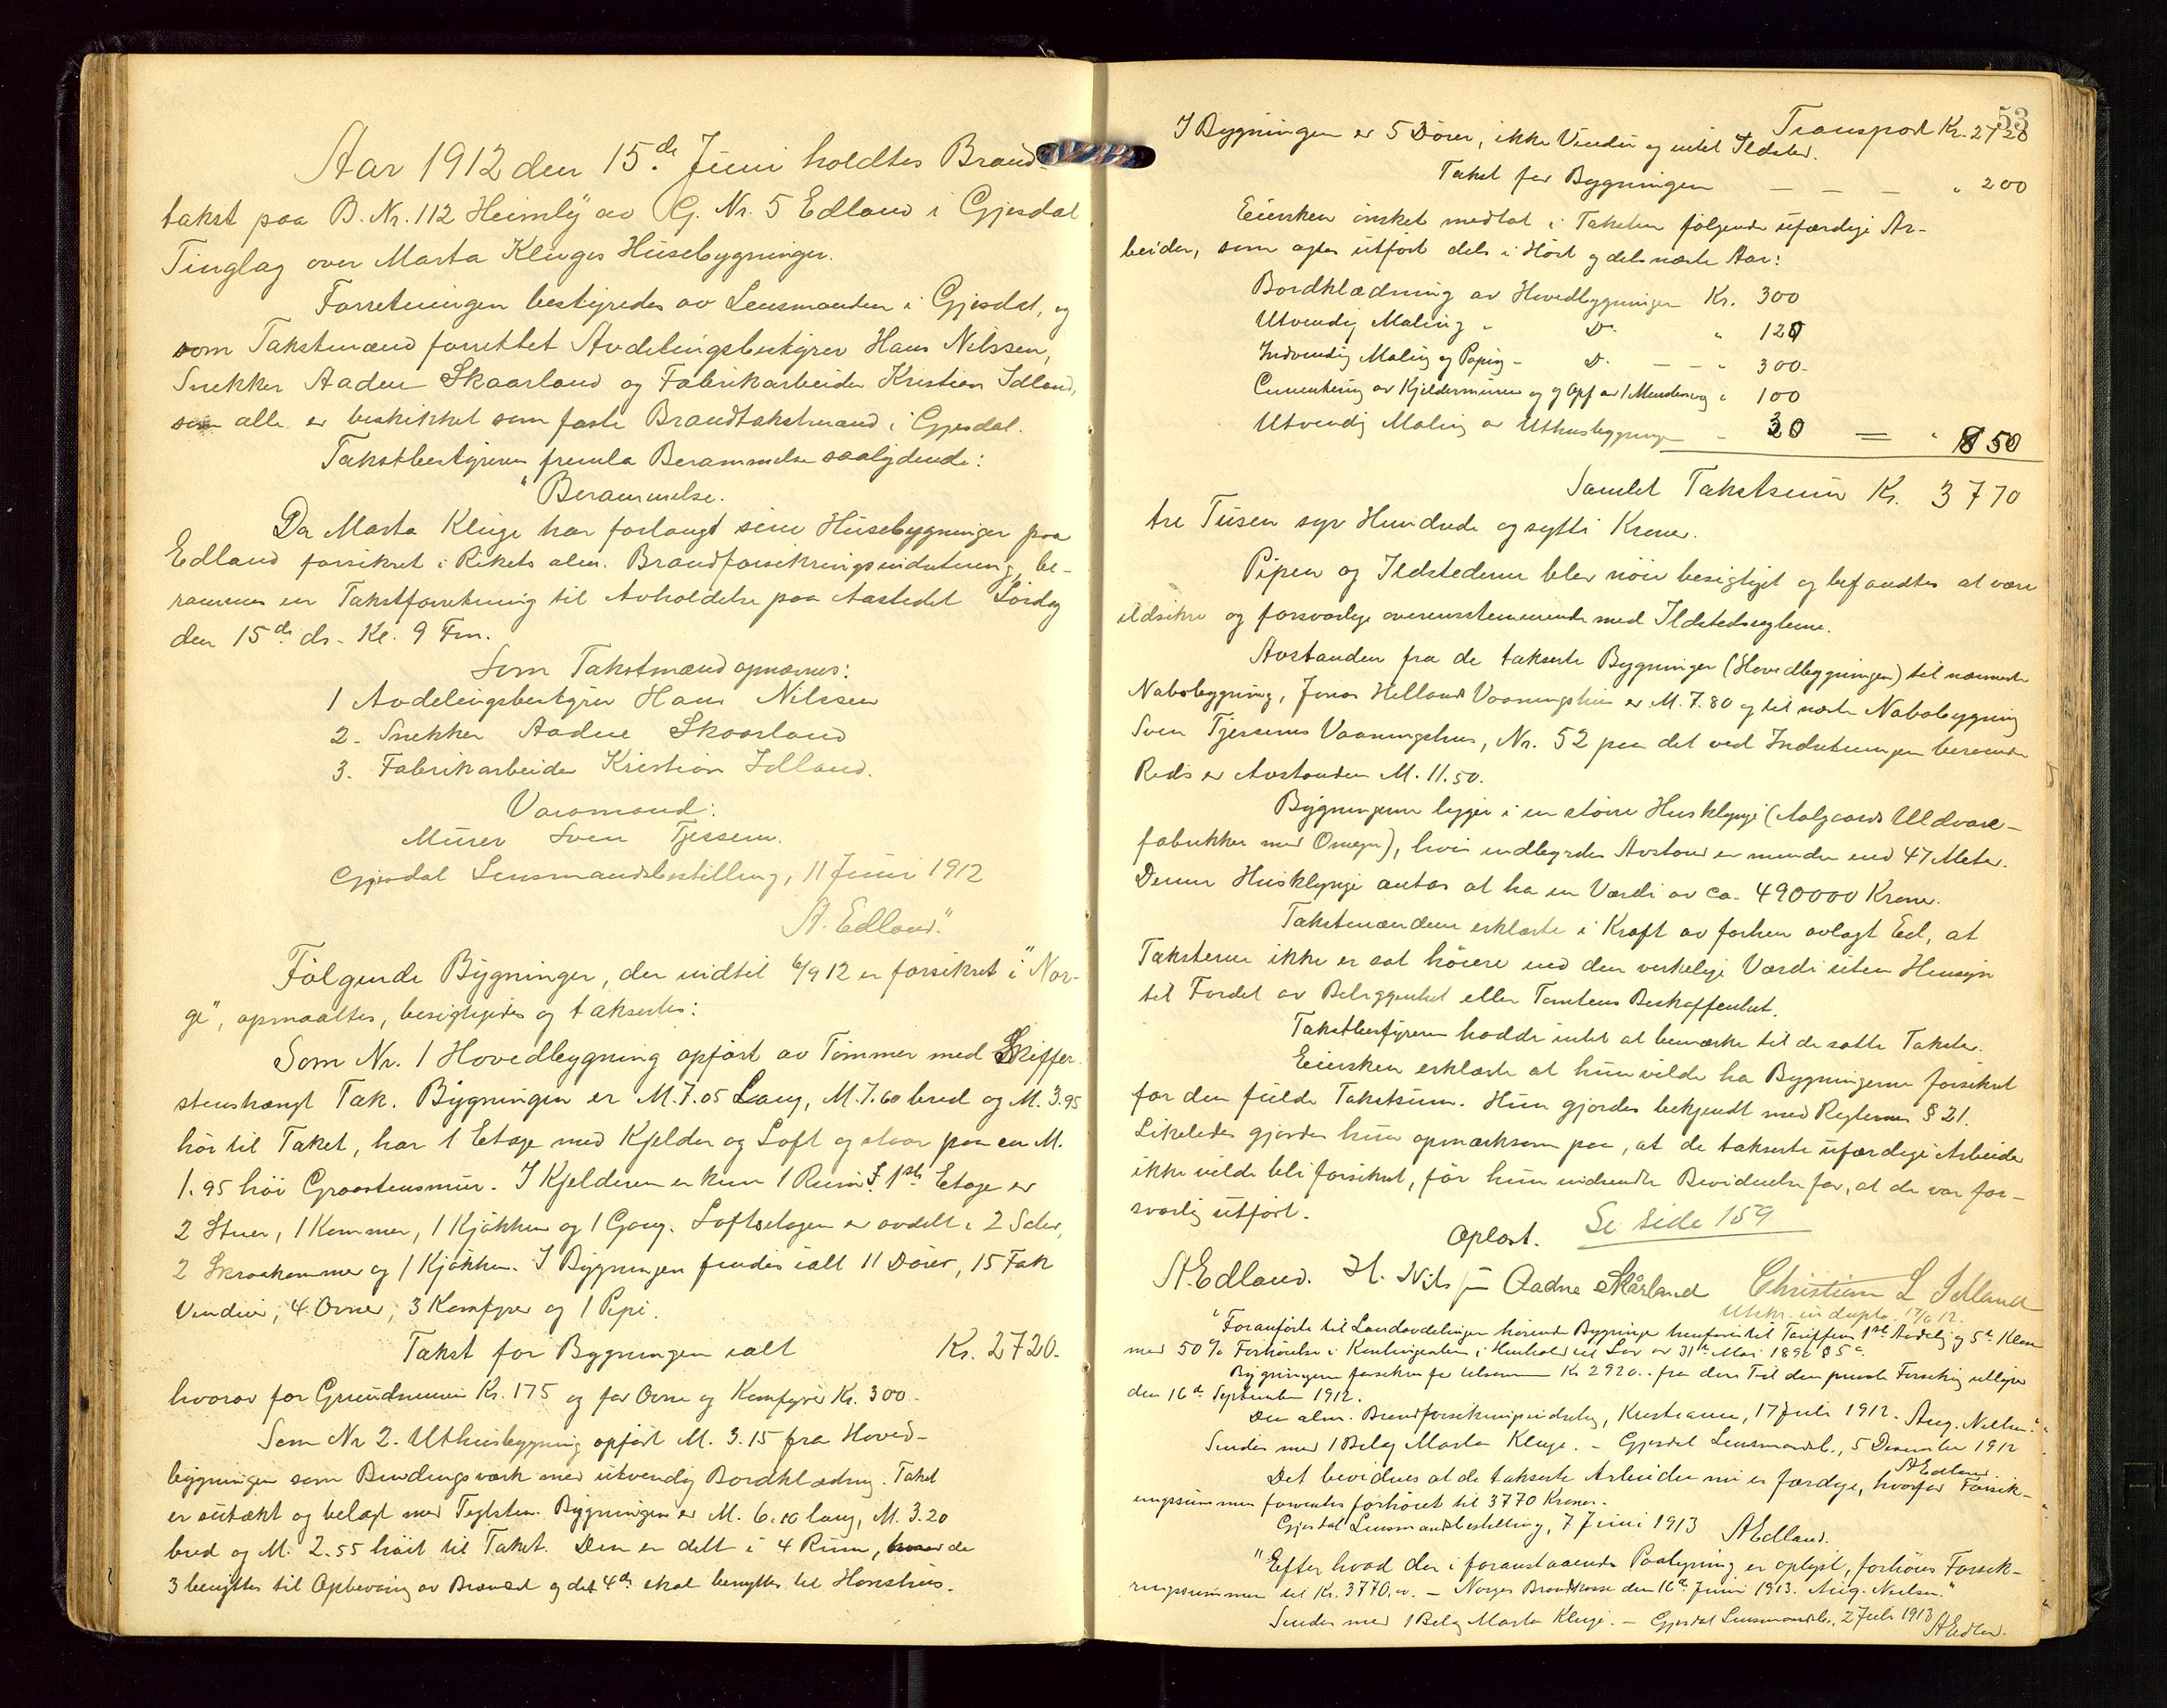 Aar 1912 den 15de Juni holdtes Brand-
takst paa B. Nr. 112 Heimly av G. Nr. 5 Edland i Gjesdal
Tinglag over Marta Kluges Husebygninger.
Forretningen bestyredes av Lensmanden i Gjesdal, og
som Takstmænd forrettet Avdelingsbestyrer Hans Nilssen,
Snekker Aadne Skaarland og Fabrikarbeider Kristian Idland,
som alle er beskikket som faste Brandtakstmænd i Gjesdal.
Takstbestyreren fremla Berammelse saalydende:
"Berammelse.
Da Marta Kluge har forlangt sine Husebygninger paa
Edland forsikret i Rikets alm. Brandforsikringsindretning, be-
rammes en Takstforretning til Avholdelse paa Aastedet Lördag
den 15de ds. Kl. 9 Fm.
Som Takstmænd opnævnes:
1 Avdelingsbestyrer Hans Nilssen
2. Snekker Aadne Skaarland
3. Fabrikarbeider Kristian Idland.
Varamand:
Murer Sven Tjessem.
Gjesdal Lensmandsbestilling, 11 Juni 1912
A. Edland."
Fölgende Bygninger, der indtil 6/9 12 er forsikret i "Nor-
ge", opmaaltes, besigtigedes og takseredes:
Som Nr. 1 Hovedbygning opfört av Tömmer med Skiffer-
stenshængt Tak. Bygningen er M. 7.05 Lang, M. 7.60 bred og M. 3.95
höi til Taket, har 1 Etage med Kjelder og Loft og staar paa en M.
1.95 höi Graastensmur. I Kjelderen er kun 1 Rum. I 1ste Etage er
2 Stuer, 1 Kammer, 1 Kjökken og 1 Gang. Loftsetagen er avdelt i 2 Saler,
2 Skraakammer og 1 Kjökken. I Bygningen findes ialt 11 Dörer, 15 Fak
Vinduer, 4 Ovner, 3 Komfyrer og 1 Pipe.
Takst for Bygningen ialt Kr. 2720.-
hvorav for Grundmuren Kr. 175 og for Ovne og Komfyrer Kr. 300.-
Som Nr 2. Uthusbygning opfört M. 3.15 fra Hoved-
bygningen som Bindingsværk med utvendig Bordklædning. Taket
er sutækt og belagt med Teglsten. Bygningen er M. 6.10 lang, M. 3.20
bred og M. 2.55 höit til Taket. Den er delt i 4 Rum, hvorav de
3 benyttes til Opbevaring av Brænde og det 4de skal benyttes til Hönsehus.
53
Transport Kr. 2720
I Bygningen er 5 Dörer, ikke Vinduer og intet Ildsted.
Takst for Bygningen — — — " 200
Eiersken önsket medtat i Taksten fölgende ufærdige Ar-
beider, som agtes utfört dels i Höst og dels næste Aar:
Bordklædning av Hovedbygningen Kr. 300
Utvendig Maling " Do. " 120
Indvendig Maling og Paping - Do. — - " 300-
Cementering av Kjeldermuren og Opf av 1 " 100
Utvendig Maling av Uthusbygningen - 30 = " 850
Samlet Takstsum Kr. 3770
tre Tusen syv Hundrede og sytti Kroner.
Pipen og Ildstederne blev nöie besigtiget og befandtes at være
ildsikre og forsvarlige overensstemmende med Ildstedsreglerne.
Avstanden fra de takserte Bygninger (Hovedbygningen) til nærmeste
Nabobygning, Jonas Hellands Vaaningshus er M. 7.80 og til næste Nabobygning
Sven Tjessems Vaaningshus, Nr. 52 paa det ved Indretningen beroende
Rids er Avstanden M. 11.50.
Bygningerne ligger i en större Husklynge (Aalgaards Uldvare-
fabrikker med Omegn), hvis indbyrdes Avstand er mindre end 47 Meter.
Denne Husklynge antas at ha en Værdi av ca. 490000 Kroner.
Takstmændene erklærte i Kraft av forhen avlagt Ed, at
Taksterne ikke er sat höiere end den virkelige Værdi uten Hensyn
til Fordel av Beliggenhet eller Tomtens Beskaffenhet.
Takstbestyreren hadde intet at bemærke til de satte Takster.
Eiersken erklærte at hun vilde ha Bygningerne forsikret
for den fulde Takstsum. Hun gjordes bekjendt med Reglernes § 21.
Likeledes gjordes hun opmærksom paa, at de takserte ufærdige Arbeider
ikke vilde bli forsikret, för hun indsendte Bevidnelse for, at de var for-
svarlig utfört.
Oplæst. Se side 159
A. Edland. H. Nilssen Aadne Skårland Christian L Idland
Utskr. in duplo 17/6 12.
"Foranförte til Landavdelingen hörende Bygninger henföres til Tariffens 1ste Avdeling og 5te Klasse
med 50 % Forhöielse i Kontingenten i Henhold til Lov av 31te Mai 1890 § 5 c.
Bygningerne forsikres for tilsammen Kr 2920.- fra den Tid den private Forsikring utlöper
den 16de September 1912.
Den alm. Brandforsikringsindretning, Kristiania, 17 Juli 1912. Aug. Nielsen."
Sendes med 1 Bilag Marta Kluge. - Gjesdal Lensmandsb., 5 Desember 1912
A Edland.
Det bevidnes at de takserte Arbeider nu er færdige, hvorfor Forsik-
ringssummen forventes forhöiet til 3770 Kroner.
Gjesdal Lensmandsbestilling, 7 Juni 1913 A Edland.
"Efter hvad der i foranstaaende Paategning er oplyst, forhöies Forsik-
ringssummen til Kr. 3770,00. - Norges Brandkasse den 16de Juni 1913. Aug. Nielsen."
Sendes med 1 Bilag Marta Kluge. - Gjesdal Lensmandsb., 2 Juli 1913 A Edland.